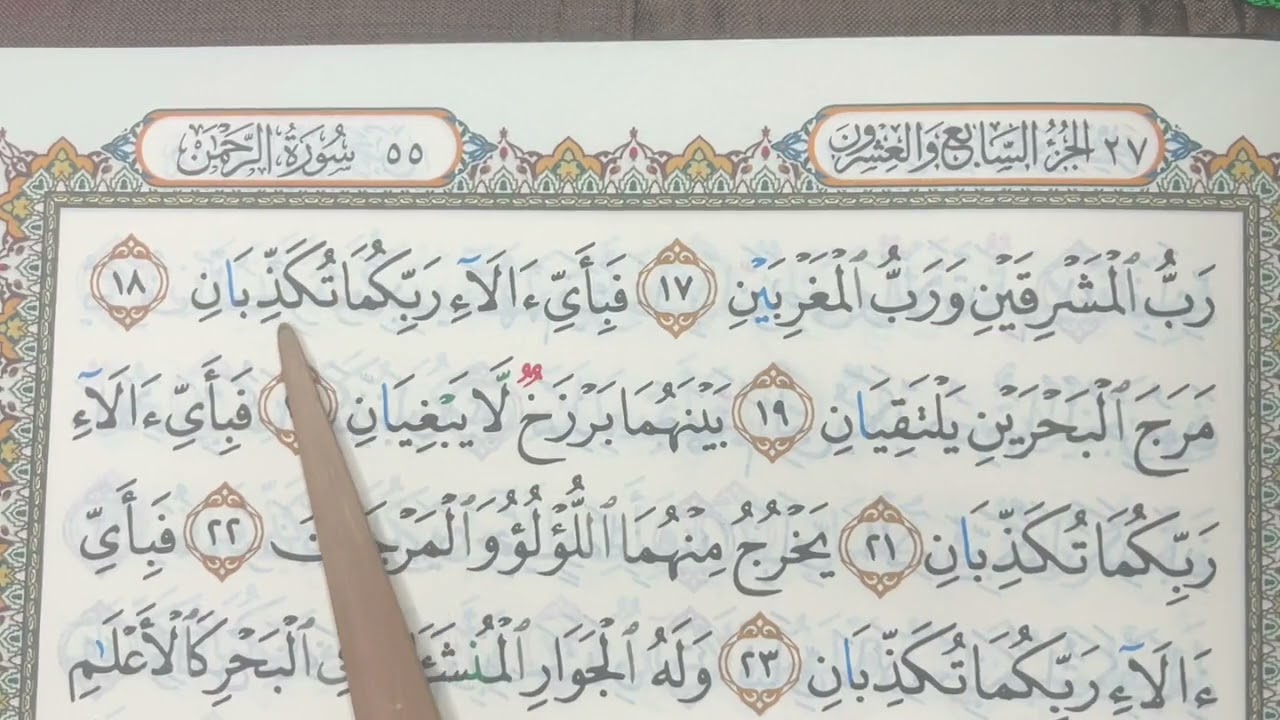 ٢٧ الجُزْءُ السَّابِعُ وَالعِشْرُونَ
٥٥ سُورَةُ الرَّحْمٰن
رَبُّ ٱلْمَشْرِقَيْنِ وَرَبُّ ٱلْمَغْرِبَيْنِ ١٧ فَبِأَيِّ ءَالَآءِ رَبِّكُمَا تُكَذِّبَانِ ١٨
مَرَجَ ٱلْبَحْرَيْنِ يَلْتَقِيَانِ ١٩ بَيْنَهُمَا بَرْزَخٌ لَّا يَبْغِيَانِ فَبِأَيِّ ءَالَآءِ
رَبِّكُمَا تُكَذِّبَانِ ٢١ يَخْرُجُ مِنْهُمَا ٱللُّؤْلُؤُ وَٱلْمَرْجَانُ ٢٢ فَبِأَيِّ
ءَالَآءِ رَبِّكُمَا تُكَذِّبَانِ ٢٣ وَلَهُ ٱلْجَوَارِ ٱلْمُنشَـَٔاتُ فِي ٱلْبَحْرِ كَٱلْأَعْلَٰمِ